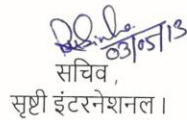 03/05/13
सचिव,
सृष्टी इंटरनेशनल।